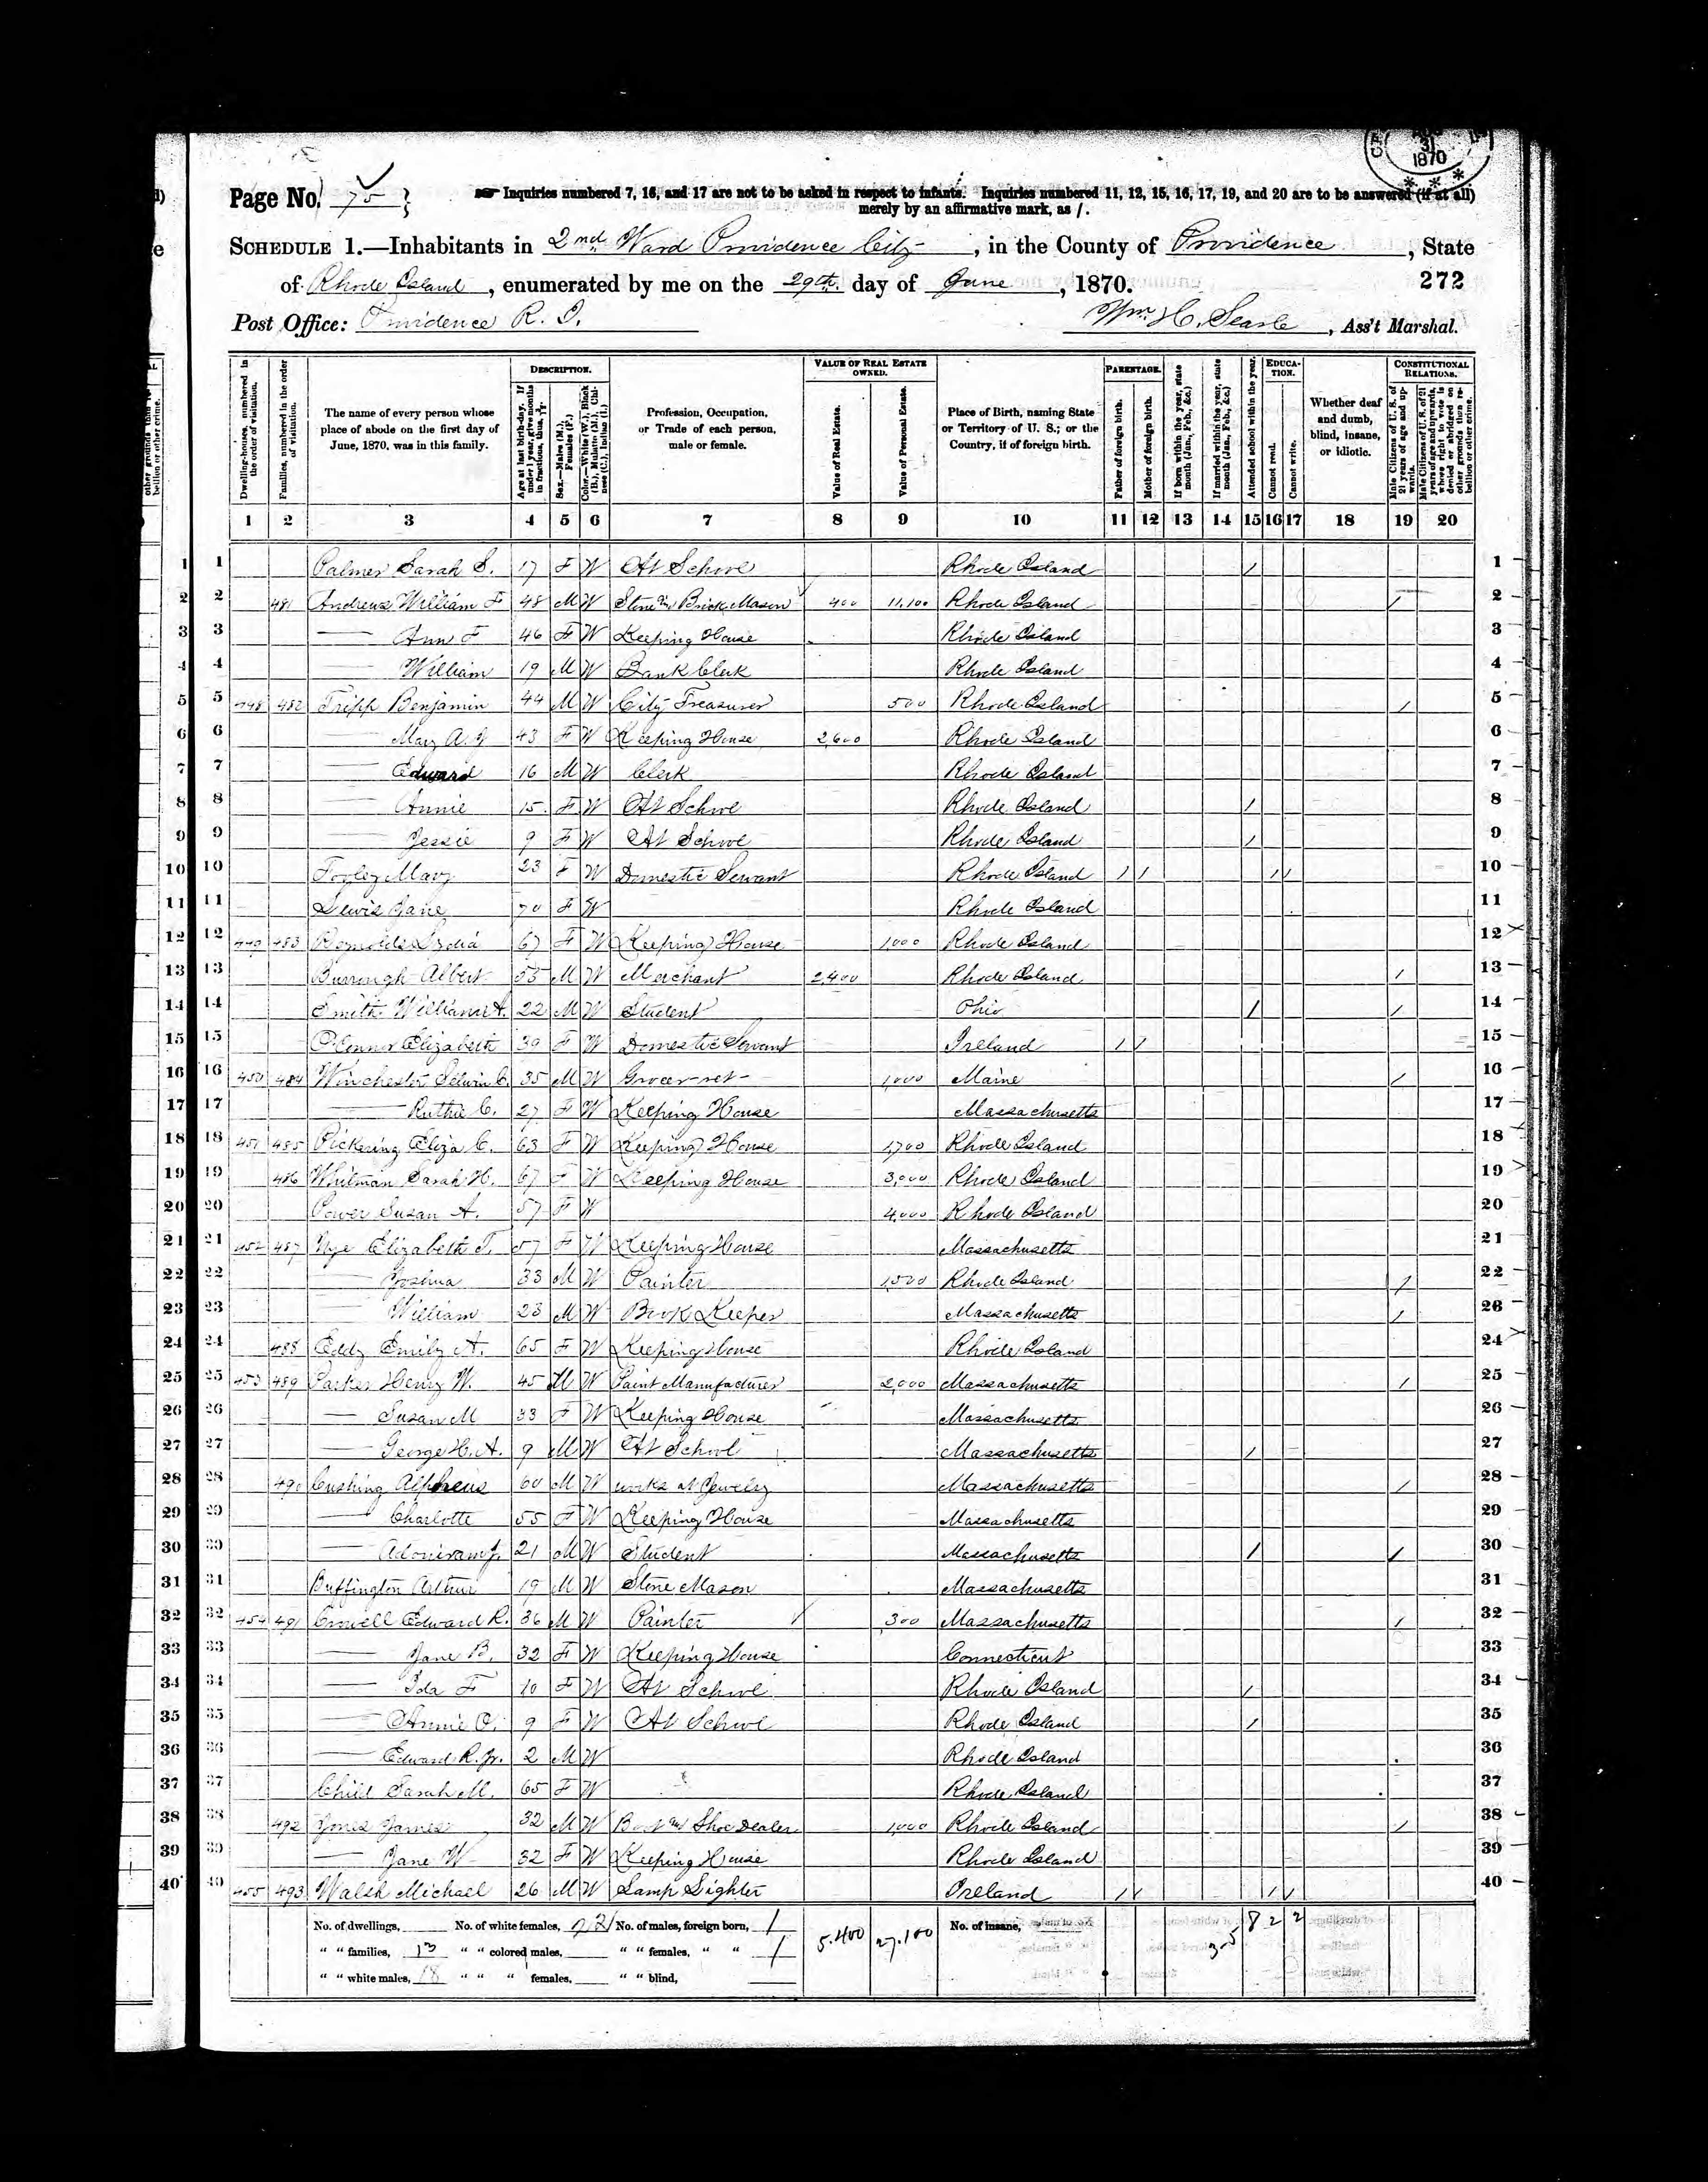 Page No. 75
Inquiries numbered 7, 16, and 17 are not to be asked in respect to infants. Inquiries numbered 11, 12, 15, 16, 17, 19, and 20 are to be answered (if at all)
merely by an affirmative mark, as /.
31
1870
SCHEDULE 1.—Inhabitants in 2nd Ward Providence City, in the County of Providence, State
of Rhode Island, enumerated by me on the 29th day of June, 1870. 272
Post Office: Providence R. I. Wm. H. Searle, Ass't Marshal.
Dwelling-houses, numbered in the order of visitation.
Families, numbered in the order of visitation.
The name of every person whose place of abode on the first day of June, 1870, was in this family.
DESCRIPTION.
Age at last birth-day. If under 1 year, give months in fractions, thus,
Sex.—Males (M.), Females (F.)
Color.—White (W.), Black (B.), Mulatto (M.), Chinese (C.), Indian (I.)
Profession, Occupation, or Trade of each person, male or female.
VALUE OF REAL ESTATE OWNED.
Value of Real Estate.
Value of Personal Estate.
Place of Birth, naming State or Territory of U. S.; or the Country, if of foreign birth.
PARENTAGE.
Father of foreign birth.
Mother of foreign birth.
If born within the year, state month (Jan., Feb., &c.)
If married within the year, state month (Jan., Feb., &c.)
Attended school within the year.
EDUCATION.
Cannot read.
Cannot write.
Whether deaf and dumb, blind, insane, or idiotic.
CONSTITUTIONAL RELATIONS.
Male Citizens of U. S. of 21 years of age and upwards.
Male Citizens of U. S. of 21 years of age and upwards, whose right to vote is denied or abridged on other grounds than rebellion or other crime.
1 2 3 4 5 6 7 8 9 10 11 12 13 14 15 16 17 18 19 20
1 1 Palmer Sarah S. 17 F W At School Rhode Island / 1
2 2 481 Andrews William F 48 M W Stone & Brick Mason 400 11,100 Rhode Island / 2
3 3 — Ann F 46 F W Keeping House Rhode Island 3
4 4 — William 19 M W Bank Clerk Rhode Island 4
5 5 448 482 Tripp Benjamin 44 M W City Treasurer 500 Rhode Island / 5
6 6 — Mary A. 43 F W Keeping House 2,600 Rhode Island 6
7 7 — Edward 16 M W Clerk Rhode Island 7
8 8 — Annie 15 F W At School Rhode Island / 8
9 9 — Jessie 9 F W At School Rhode Island / 9
10 10 Mary 23 F W Domestic Servant Rhode Island / / / / 10
11 11 Lewis Jane 70 F W Rhode Island 11
12 12 449 483 Reynolds Lydia 67 F W Keeping House 1,000 Rhode Island 12
13 13 Burrough Albert 55 M W Merchant 2,400 Rhode Island / 13
14 14 Smith William A. 22 M W Student Ohio / / 14
15 15 O'Connor Elizabeth 30 F W Domestic Servant Ireland / / 15
16 16 450 484 Winchester Selwin C. 35 M W Grocer-ret- 1,000 Maine / 16
17 17 — Ruthie C. 27 F W Keeping House Massachusetts 17
18 18 451 485 Pickering Eliza C. 63 F W Keeping House 1,700 Rhode Island 18
19 19 486 Whitman Sarah H. 67 F W Keeping House 3,000 Rhode Island 19
20 20 Power Susan A. 57 F W 4,000 Rhode Island 20
21 21 452 487 Nye Elizabeth T. 57 F W Keeping House Massachusetts 21
22 22 — Joshua 33 M W Painter 1,500 Rhode Island / 22
23 23 — William 23 M W Book Keeper Massachusetts / 23
24 24 488 Eddy Emily A. 65 F W Keeping House Rhode Island 24
25 25 453 489 Parker Henry W. 45 M W Paint Manufacturer 2,000 Massachusetts / 25
26 26 — Susan M 33 F W Keeping House Massachusetts 26
27 27 — George H. A. 9 M W At School Massachusetts / 27
28 28 490 Cushing Alpheus 60 M W works at Jewelry Massachusetts / 28
29 29 — Charlotte 55 F W Keeping House Massachusetts 29
30 30 — Adoniram J. 21 M W Student Massachusetts / / 30
31 31 Buffington Arthur 19 M W Stone Mason Massachusetts 31
32 32 454 491 Crowell Edward R. 36 M W Painter 300 Massachusetts / 32
33 33 — Jane B. 32 F W Keeping House Connecticut 33
34 34 — Ida F 10 F W At School Rhode Island / 34
35 35 — Annie O. 9 F W At School Rhode Island / 35
36 36 — Edward R. Jr. 2 M W Rhode Island 36
37 37 Child Sarah M. 65 F W Rhode Island 37
38 38 492 Jones James 32 M W Boot & Shoe Dealer 1,000 Rhode Island / 38
39 39 — Jane W 32 F W Keeping House Rhode Island 39
40 40 455 493 Walsh Michael 26 M W Lamp Lighter Ireland / / / / 40
No. of dwellings, No. of white females, 22 No. of males, foreign born, 1 5.400 27.100 No. of insane, 8 2 2
" " families, 13 " " colored males, " " females, " " 1 35
" " white males, 18 " " " females, " " blind,